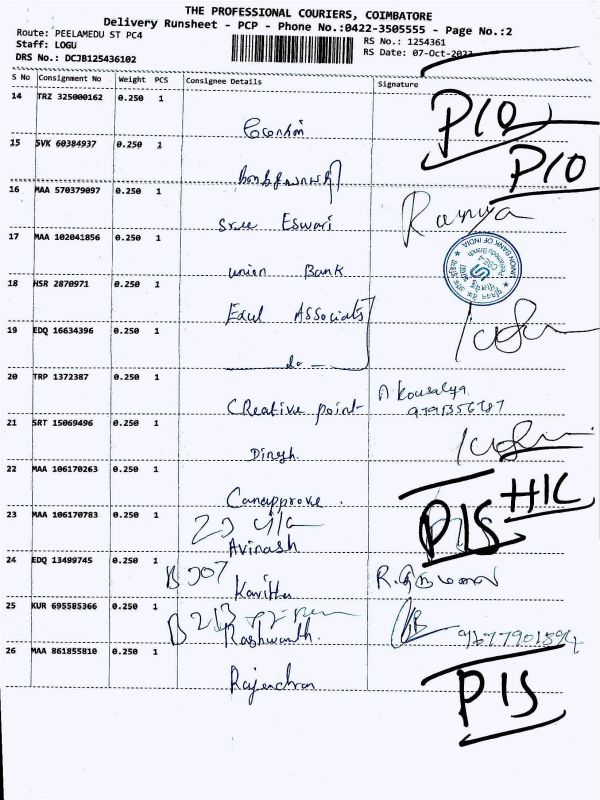 THE PROFESSIONAL COURIERS, COIMBATORE
Delivery Runsheet - PCP - Phone No.:0422-3505555 - Page No.:2
Route: PEELAMEDU ST PC4
RS No.: 1254361
Staff: LOGU
RS Date: 07-Oct-2023
DRS No.: DCJB125436102
S No Consignment No Weight PCS Consignee Details Signature
14 TRZ 325000162 0.250 1
P10
15 SVK 60384937 0.250 1
P10
16 MAA 570379097 0.250 1
Sree Eswari Ramya
17 MAA 102041856 0.250 1
Union Bank
UNION BANK OF INDIA
18 HSR 2870971 0.250 1
Exul Associates
19 EDQ 16634396 0.250 1
do
20 TRP 1372387 0.250 1
Creative point A Kousalya
21 SRT 15069496 0.250 1
Dinesh
22 MAA 106170263 0.250 1
Canapprove
H1C
23 MAA 106170783 0.250 1
Avinash P1S
24 EDQ 13499745 0.250 1
B 907
Kavitha
25 KUR 695585366 0.250 1
B 213
Rashwanth
26 MAA 861855810 0.250 1
Rajendran P1S